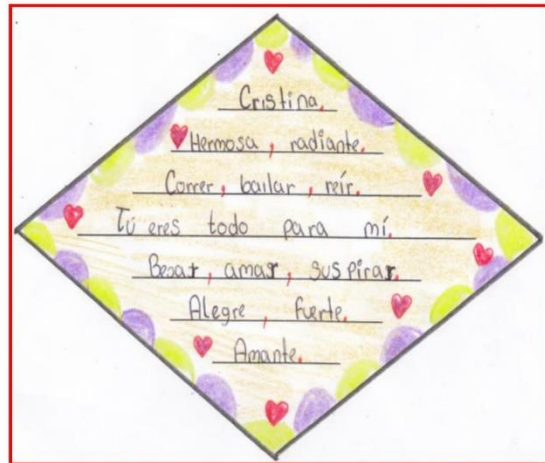 Cristina.
Hermosa, radiante.
Correr, bailar, reír.
Tú eres todo para mí.
Besar, amar, suspirar.
Alegre, fuerte.
Amante.